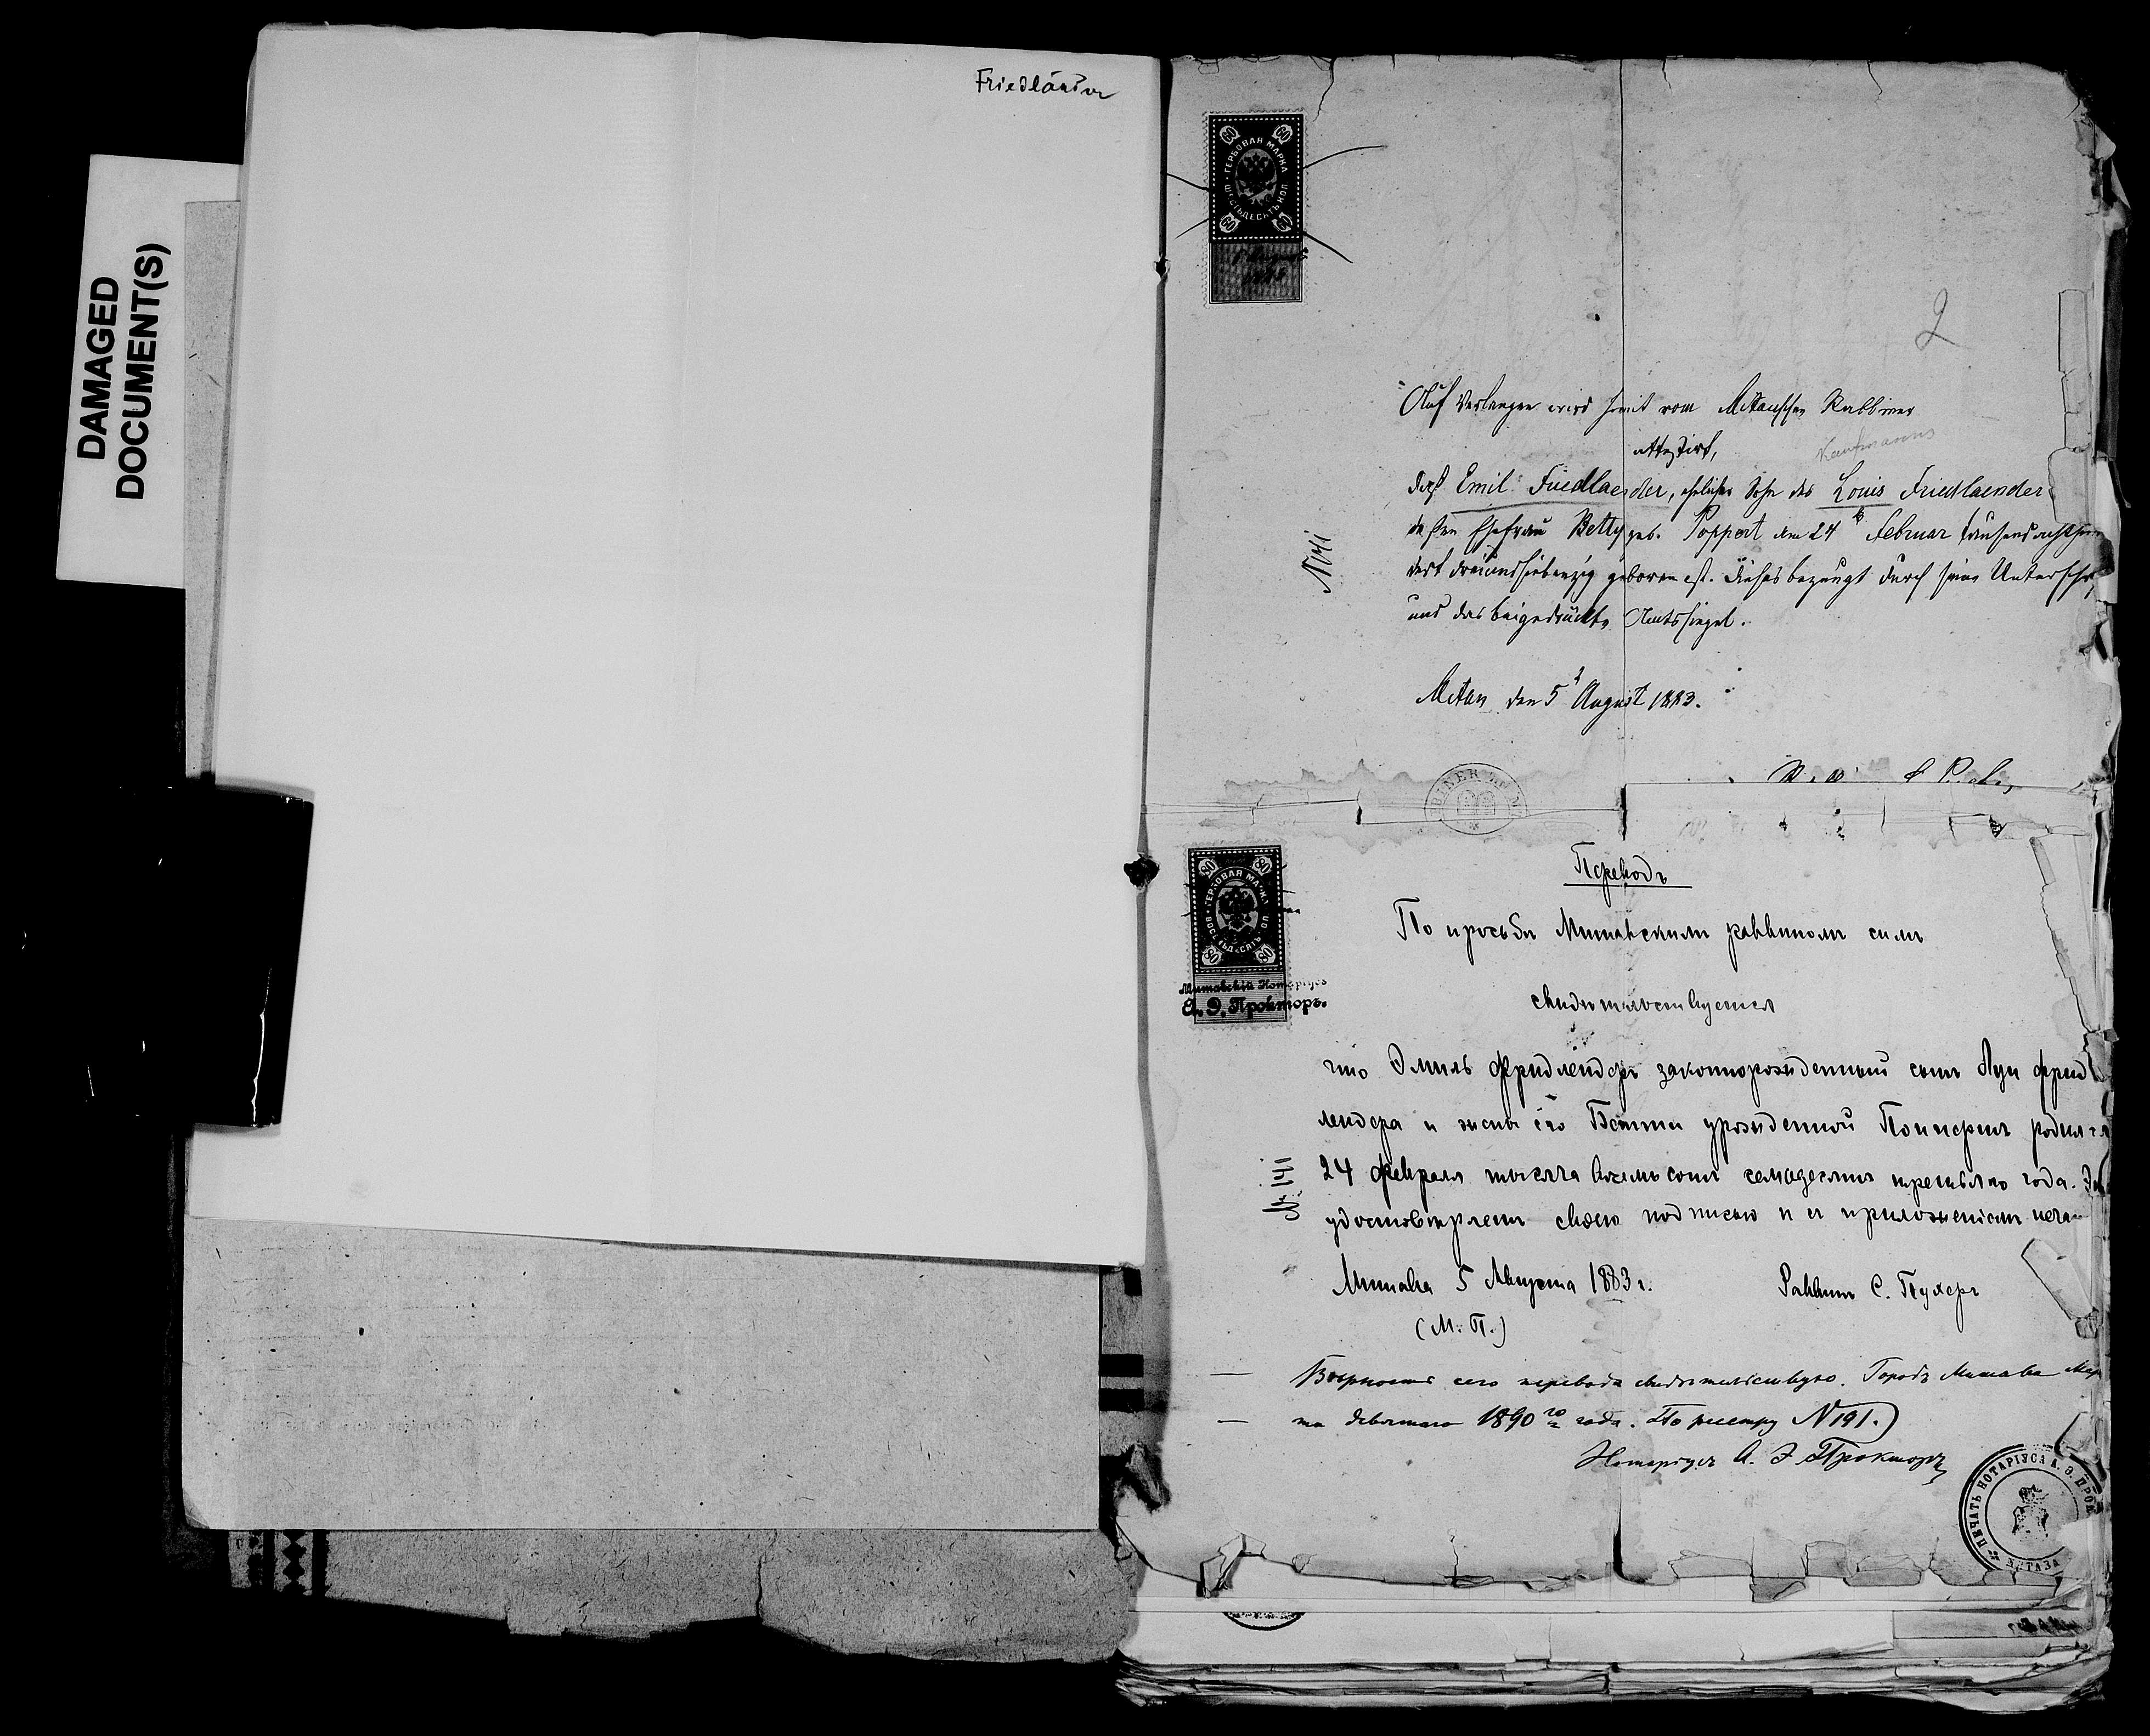 DAMAGED
DOCUMENT(S)
Friedländer
ГЕРБОВАЯ МАРКА
ШЕСТЬДЕСЯТЪ КОП
60 60
60 60
1883
2
Auf Verlangen wird hiemit vom Mitauschen Rabbiner
attestirt,
Kaufmanns
daß Emil Friedlaender, ehelicher Sohn des Louis Friedlaender
dessen Ehefrau Betty geb. Poppert am 24 Februar tausendachthun
dert dreiundsiebenzig geboren ist. Dieses bezeugt durch seine Unterschr
und das beigedrückte Amtssiegel.
Mitau den 5 August 1883.
ГЕРБОВАЯ МАРКА
ВОСЕМЬДЕСЯТЪ КОП
80 80
80 80
Митавскій Нотаріусъ
А. Э. Прокторъ.
Переводъ
По просьбѣ Митавскимъ раввиномъ симъ
свидѣтельствуется
что Эмиль Фридлендеръ законнорожденный сынъ Луи Фрид
лендера и жены его Бетти урожденной Поппертъ родился
№ 141
24 февраля тысяча восемьсотъ семьдесятъ третьяго года.
удостовѣряетъ своею подписью и съ приложеніемъ печа
Митава 5 Августа 1883 г. Раввинъ С. Пухеръ
(М. П.)
Вѣрность сего перевода свидѣтельствую. Городъ Митава Мар
та девятаго 1890 го года. По реестру N 191.
Нотаріусъ А. Э. Прокторъ
ПЕЧАТЬ НОТАРІУСА А. Э. ПРОК